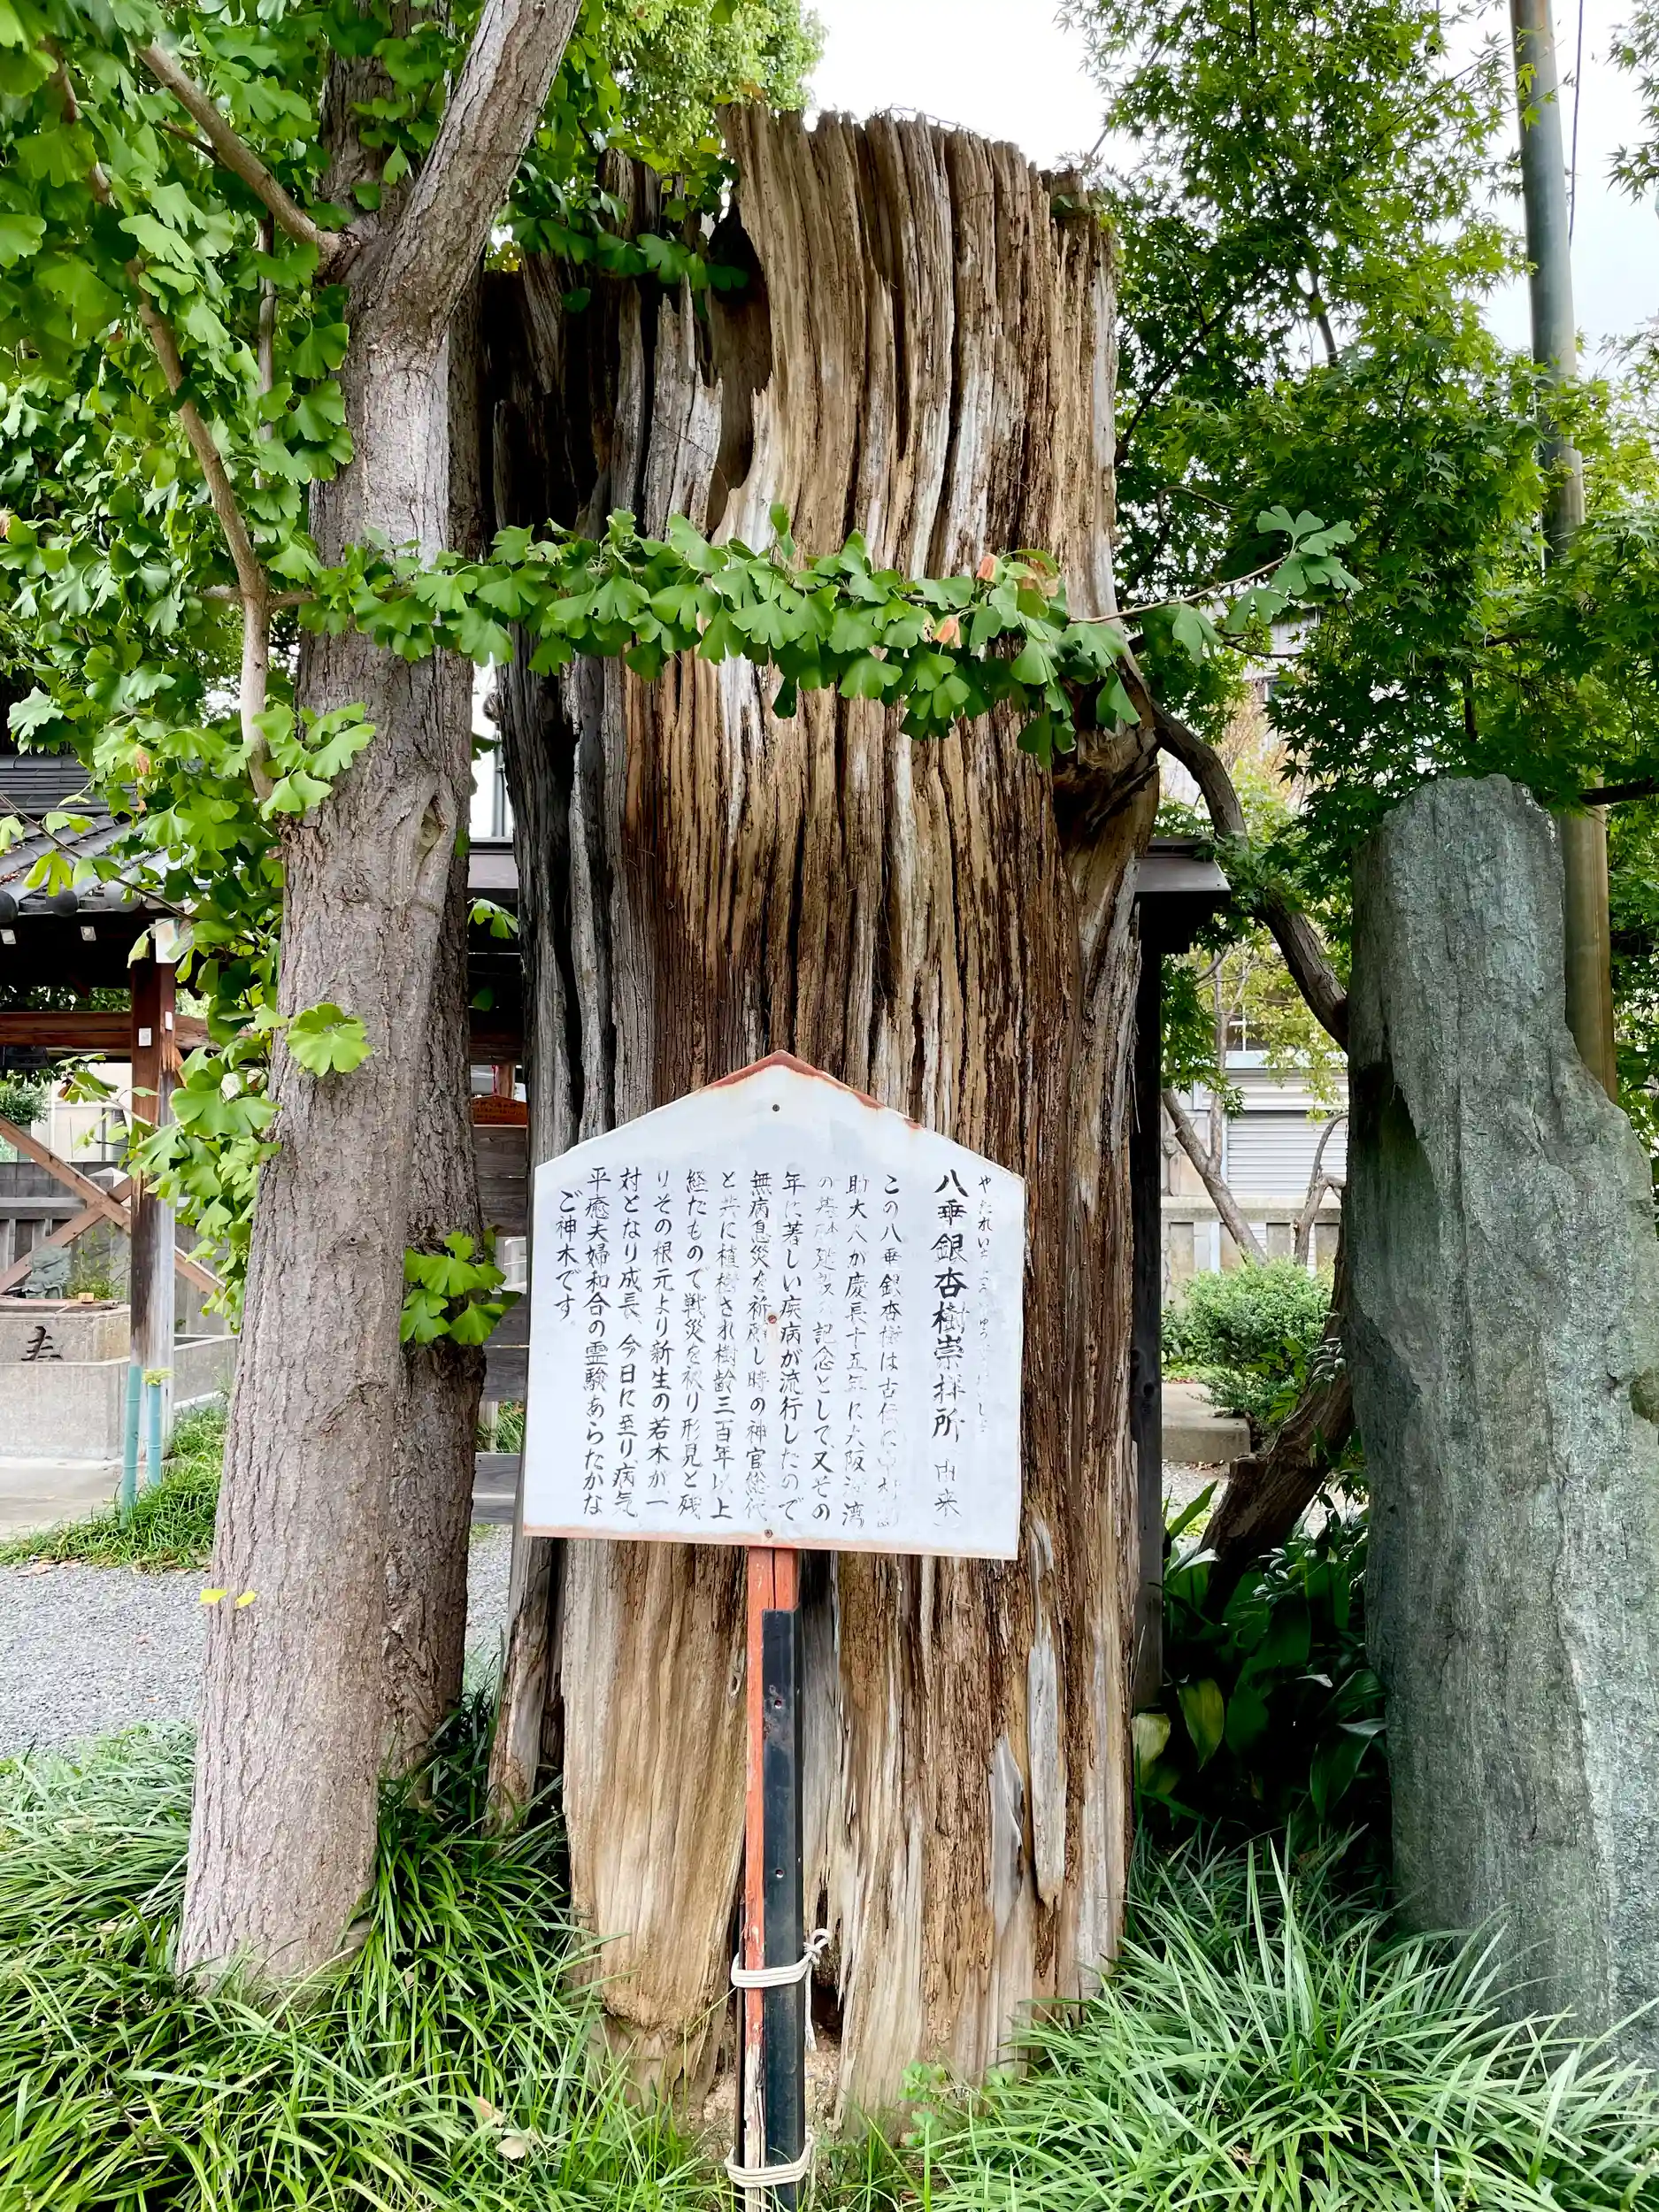 やたれいちょうじゅうはいしょ
八垂銀杏樹崇拝所 由来
この八垂銀杏樹は古伝に中村勘
助大人が慶長十五年に大阪湾
の基礎建設の記念として、又その
年に著しい疾病が流行したので
無病息災を祈願し時の神官総代
と共に植樹され樹齢三百年以上
経たもので戦災を被り形見と残
りその根元より新生の若木が一
対となり成長、今日に至り病気
平癒夫婦和合の霊験あらたかな
ご神木です。